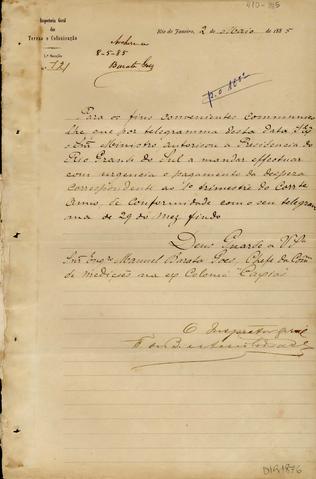 Inspectoria Geral
das
Terras e Colonisação
Rio de Janeiro, 2 de Maio de 1885
1.ª Secção
N.º 721
Archive-se
8-5-85
Barata Góes
Para os fins convenientes communico-
lhe que por telegramma desta data S. Ex.
o Snr. Ministro autorisou a Presidencia do
Rio Grande do Sul a mandar effectuar
com urgencia o pagamento da despeza
correspondente ao 1º trimestre do Corrte
Anno, de conformidade com o seu telegram-
ma de 29 do mez findo
Deus Guarde a V. Sa.
Snr. Engro. Manuel Barata Góes, Chefe da Com.
de medições na ex Colonia "Caxias"
O Inspector geral
DIG1876